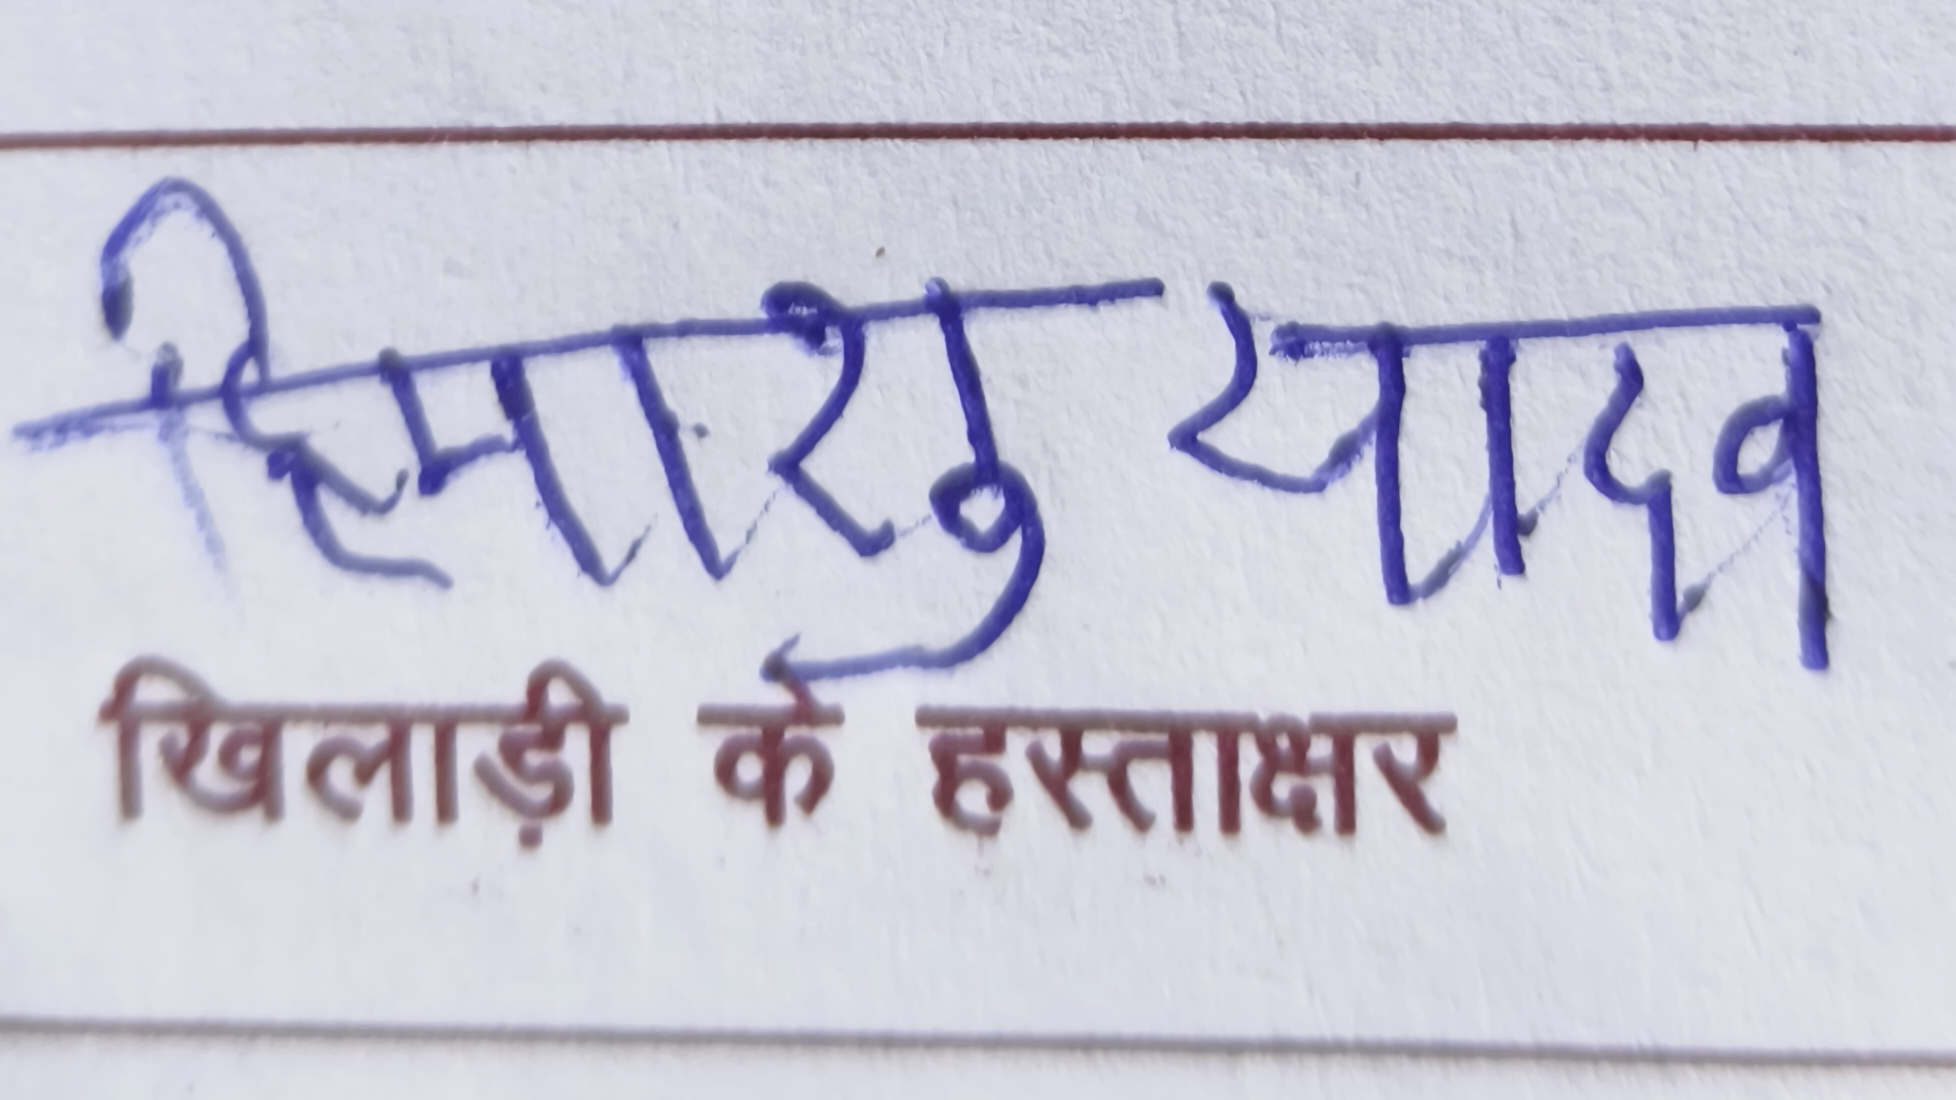 हिमाशु यादव
खिलाड़ी के हस्ताक्षर